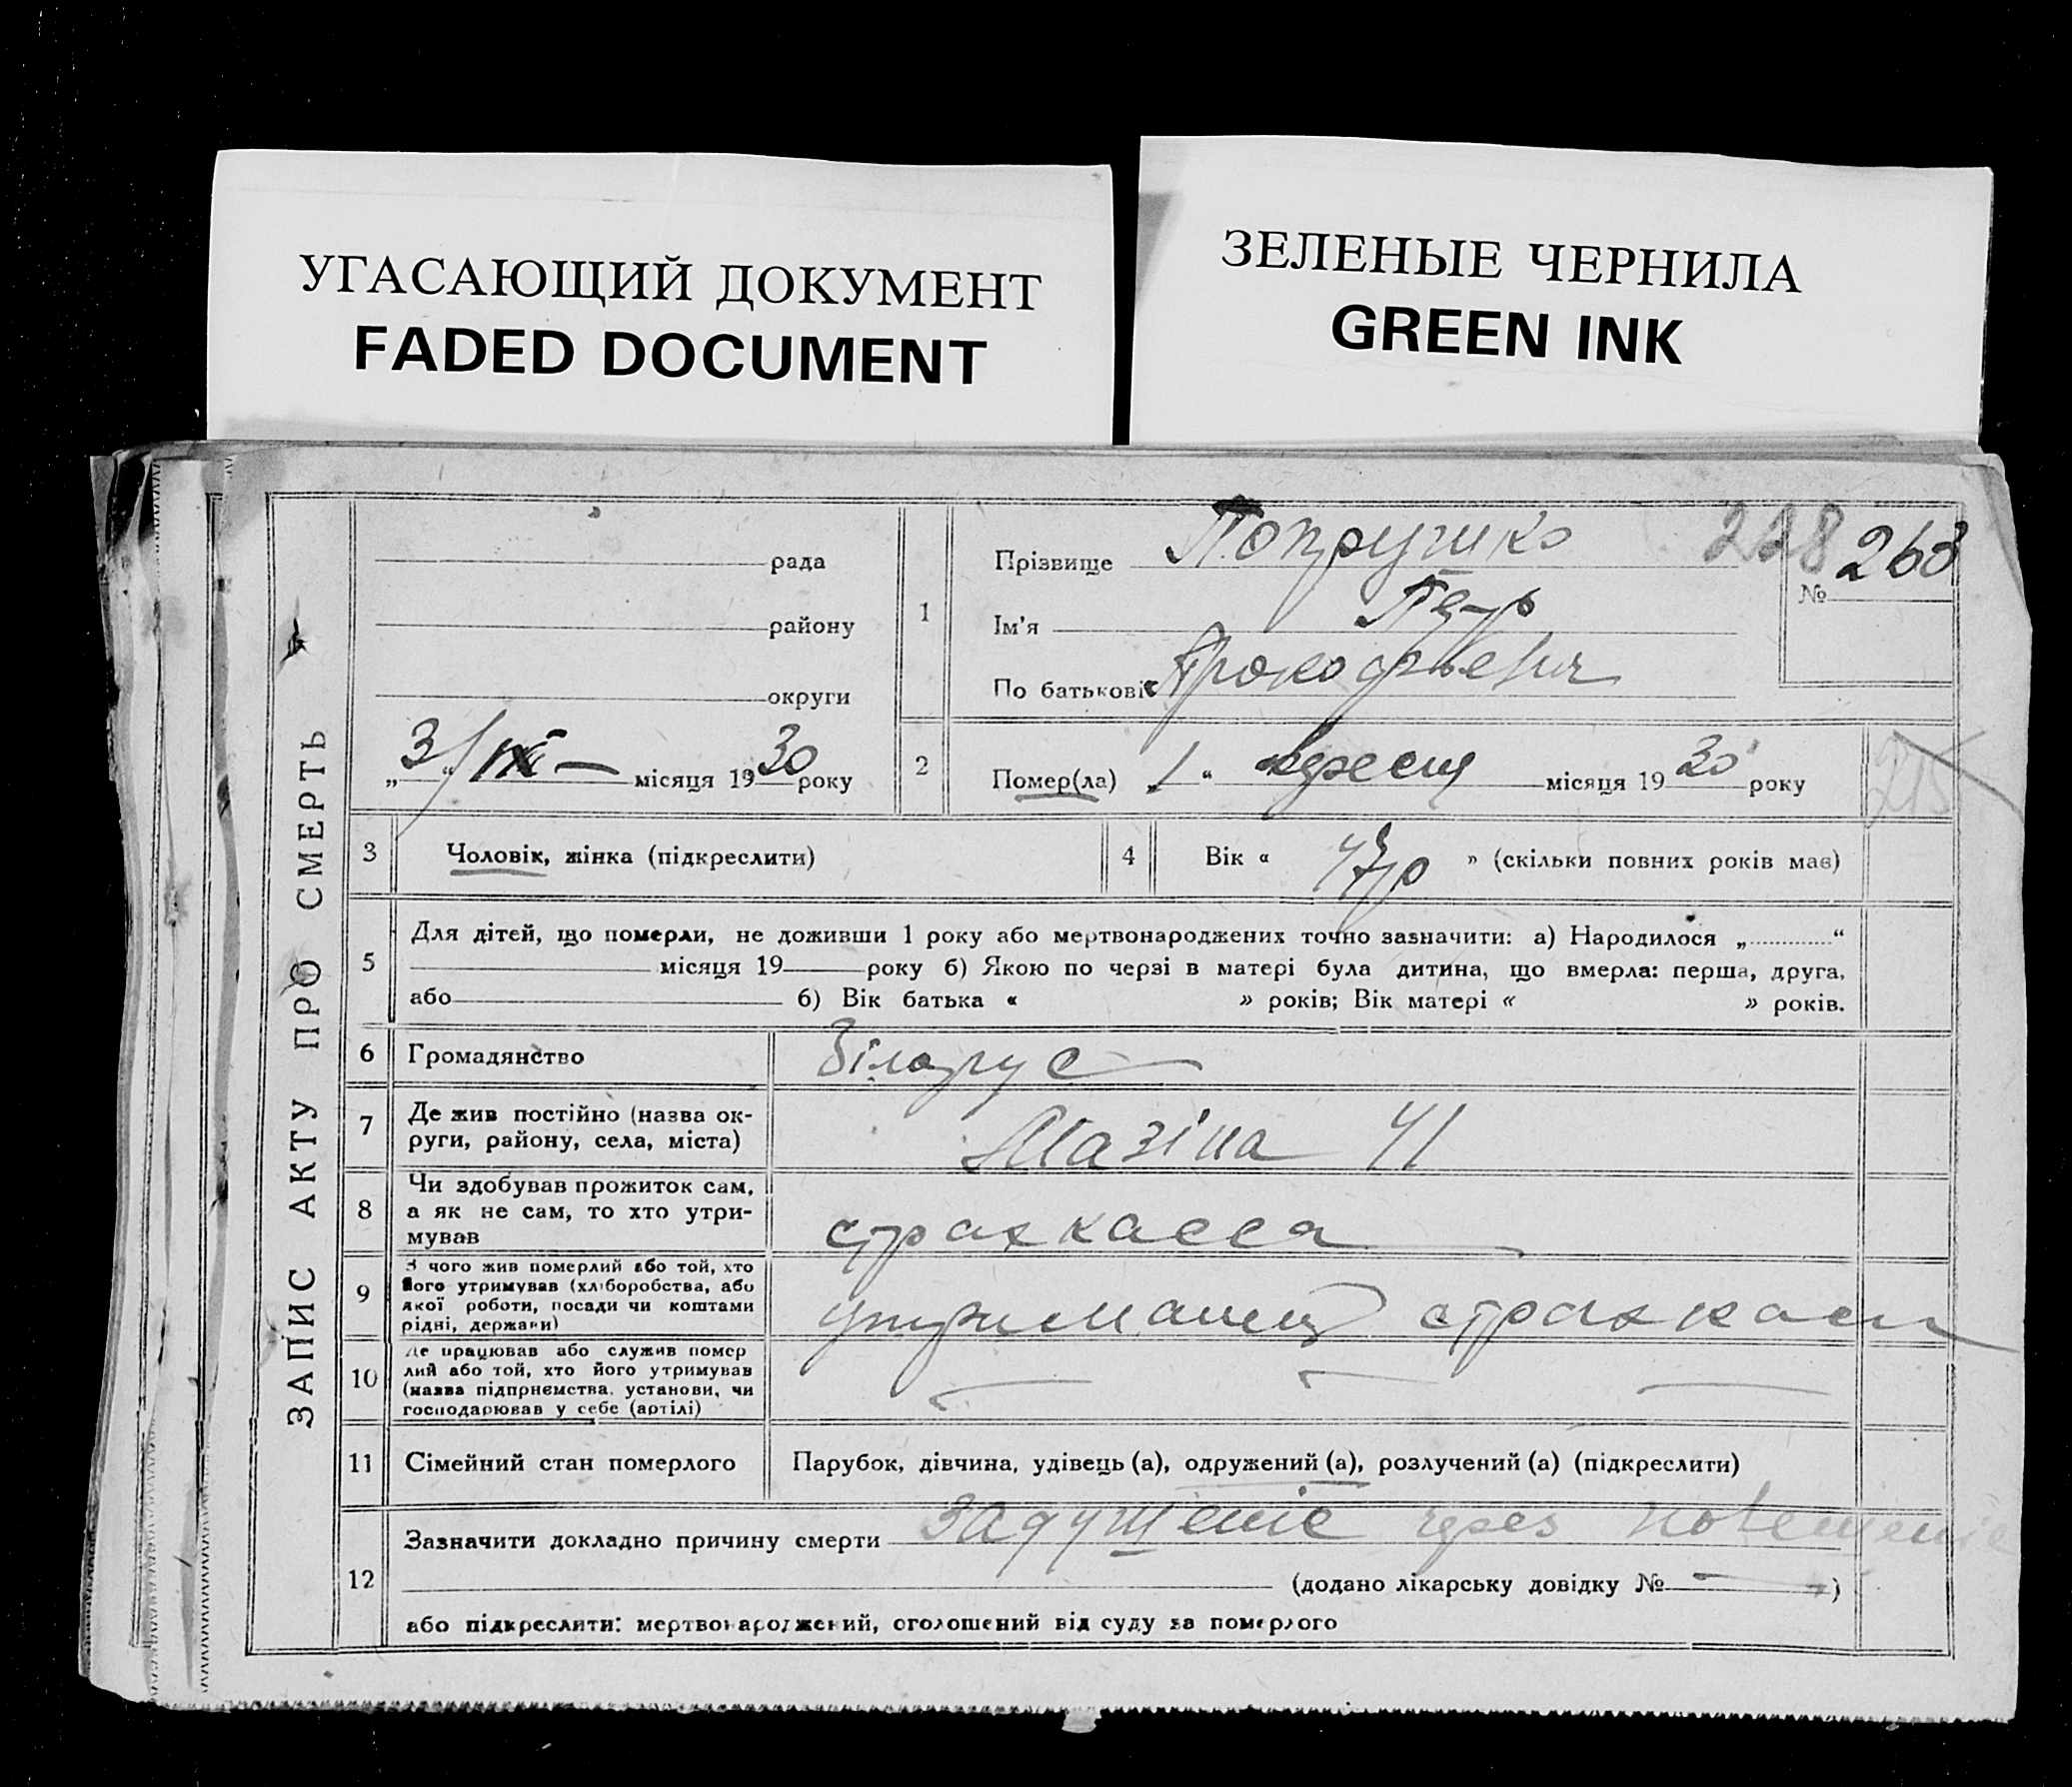 УГАСАЮЩИЙ ДОКУМЕНТ
FADED DOCUMENT
ЗЕЛЕНЫЕ ЧЕРНИЛА
GREEN INK
ЗАПИС АКТУ ПРО СМЕРТЬ
рада
району
округи
„3“ / IX – місяця 1930 року
1
Прізвище Попрушко
Ім'я Петр
По батькові Прокофьевич
228
№ 268
2
Помер(ла) „1“ вересня місяця 1930 року
215
3
Чоловік, жінка (підкреслити)
4
Вік « 47 р » (скільки повних років має)
5
Для дітей, що померли, не доживши 1 року або мертвонароджених точно зазначити: а) Народилося „ “
місяця 19 року б) Якою по черзі в матері була дитина, що вмерла: перша, друга,
або б) Вік батька « » років; Вік матері « » років.
6
Громадянство
Білорус
7
Де жив постійно (назва ок-
руги, району, села, міста)
Мазіна 41
8
Чи здобував прожиток сам,
а як не сам, то хто утри-
мував
страхкасса
9
З чого жив померлий або той, хто
його утримував (хліборобства, або
якої роботи, посади чи коштами
рідні, держави)
утриманец страхкаси
10
Де працював або служив помер
лий або той, хто його утримував
(назва підприємства, установи, чи
господарював у себе (артілі)
11
Сімейний стан померлого
Парубок, дівчина, удівець (а), одружений (а), розлучений (а) (підкреслити)
12
Зазначити докладно причину смерти задушеніе через повешеніе
(додано лікарську довідку № — )
або підкреслити: мертвонароджений, оголошений від суду за померлого